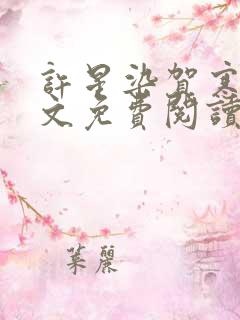 許星染賀寒
文免費閱讀
葉麗